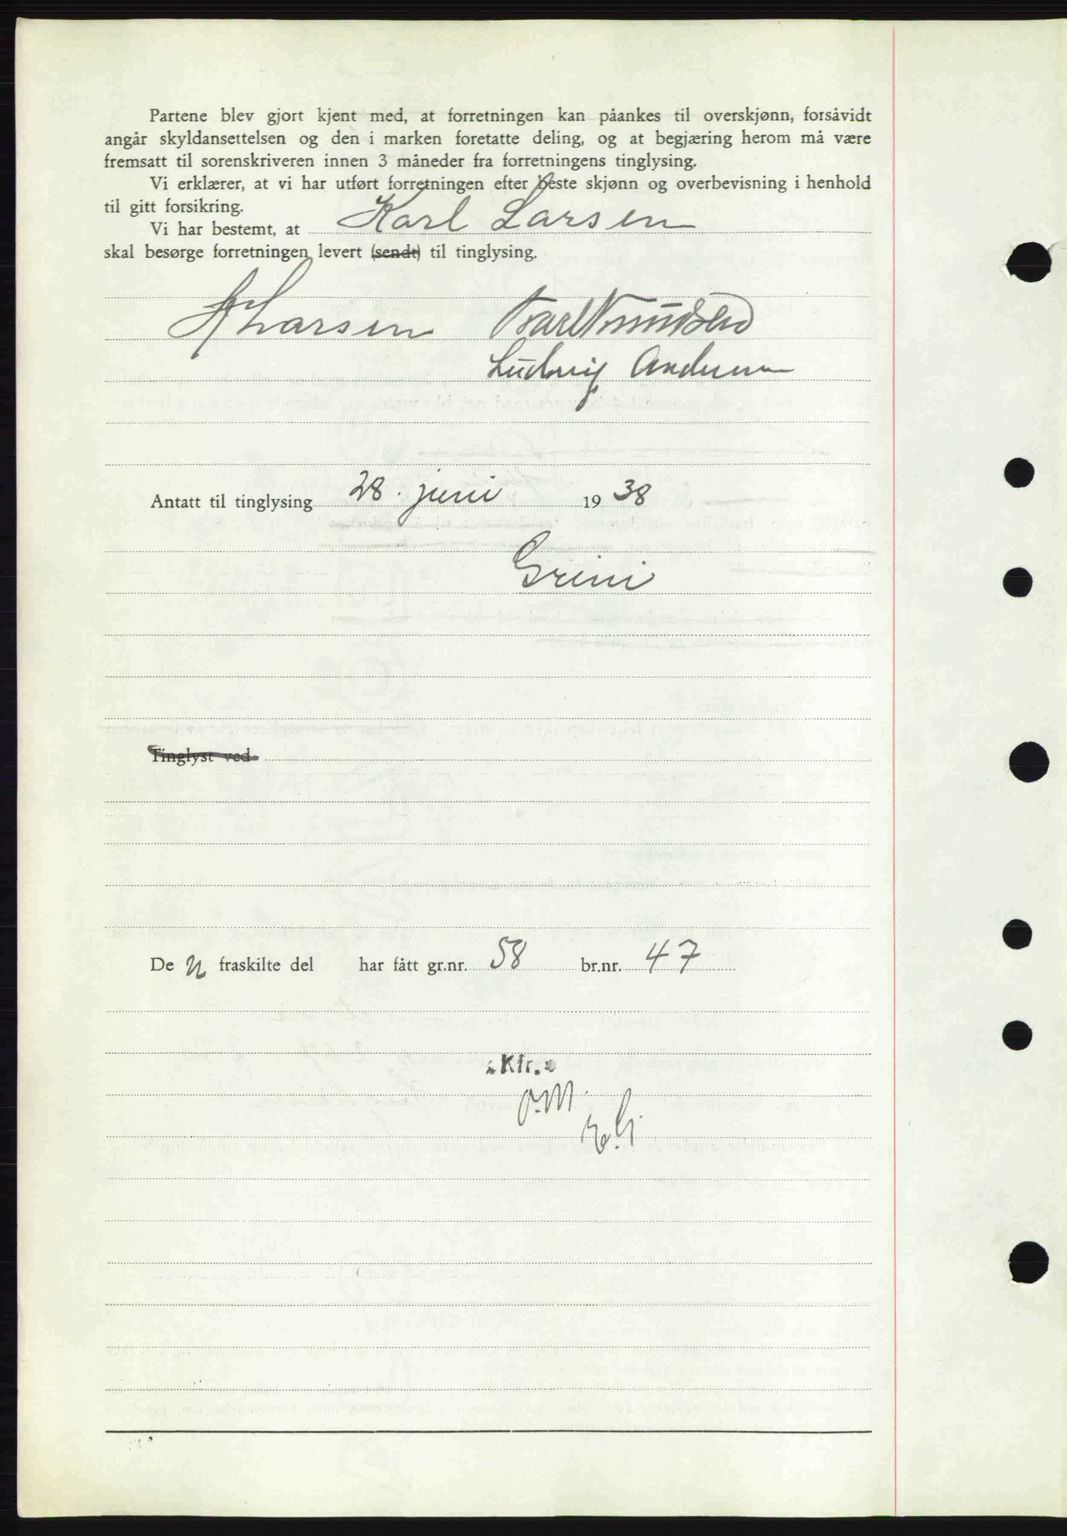 Partene blev gjort kjent med, at forretningen kan påankes til overskjønn, forsåvidt
angår skyldansettelsen og den i marken foretatte deling, og at begjæring herom må være
fremsatt til sorenskriveren innen 3 måneder fra forretningens tinglysing.
Vi erklærer, at vi har utført forretningen efter beste skjønn og overbevisning i henhold
til gitt forsikring.
Vi har bestemt, at Karl Larsen
skal besørge forretningen levert (sendt) til tinglysing.
K Larsen Karl Knudsen
Ludvig Andersen
Antatt til tinglysing 28. juni 1938
Grini
Tinglyst ved
De n fraskilte del har fått gr.nr. 58 br.nr. 47
Kfr.
O.M.